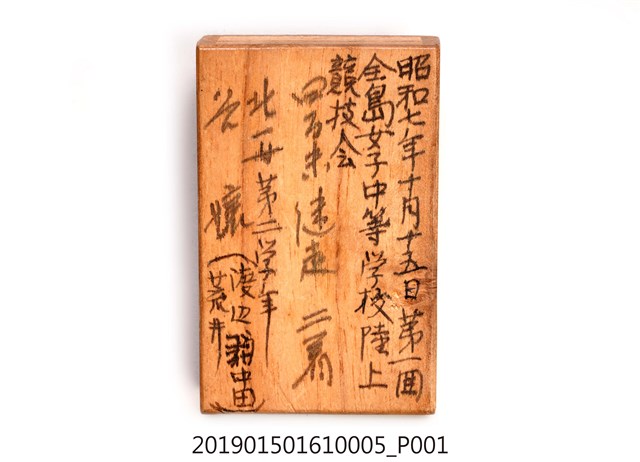 昭和七年十月十五日第一囬
全島女子中等学校陸上
競技会
四百米継走 二着
北一女第二学年
渡辺
中田
荒井
201901501610005_P001